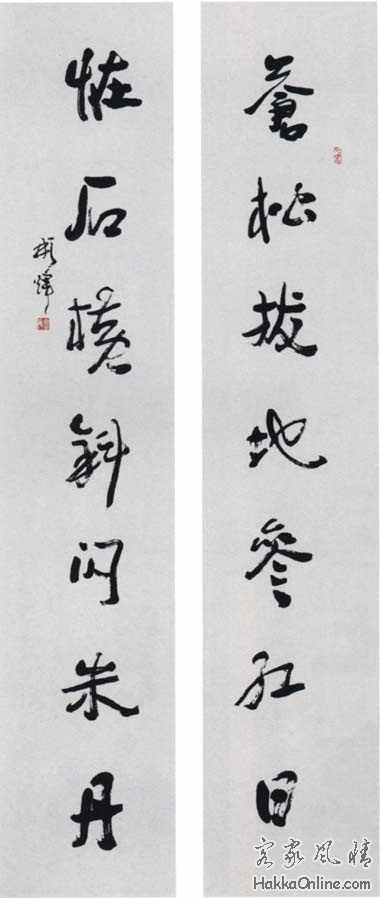 蒼松拔地參紅日
恠石橫斜闪朱丹
客家风情
HakkaOnline.com